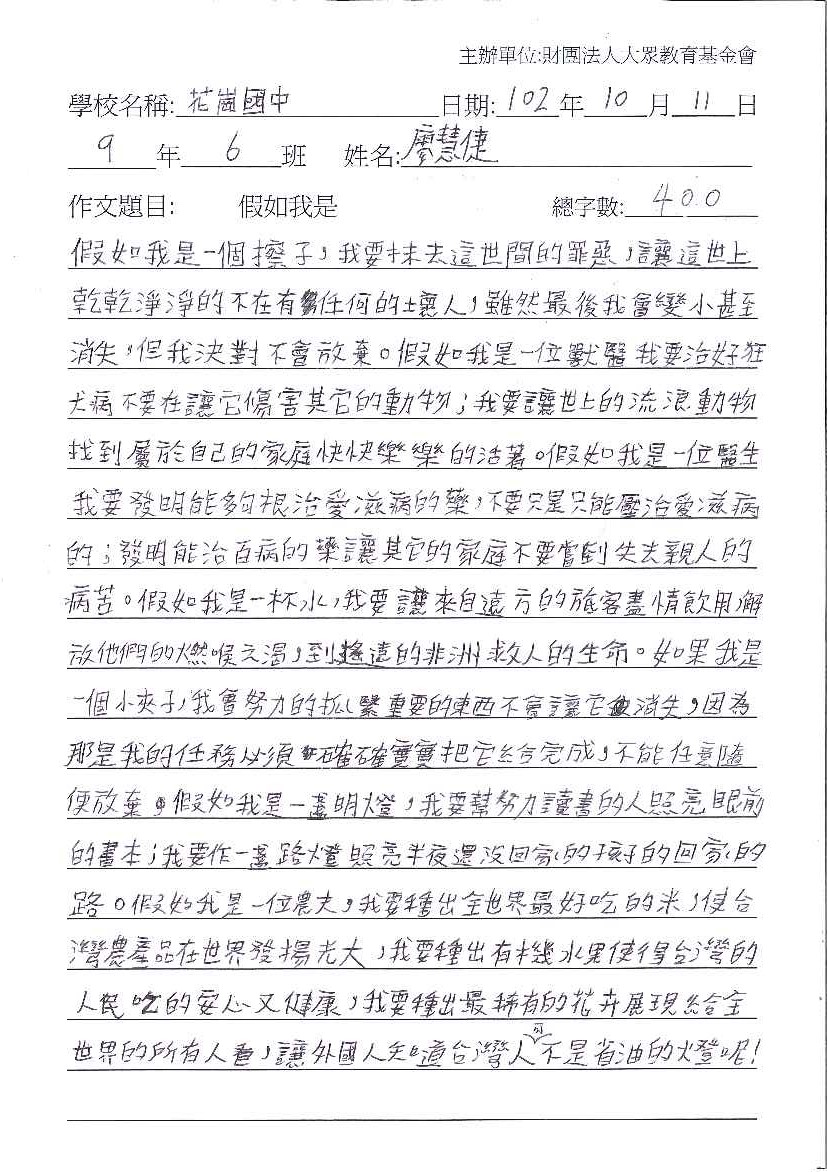 主辦單位:財團法人大眾教育基金會
學校名稱: 花崗國中 日期: 102 年 10 月 11 日
9 年 6 班 姓名: 廖慧倢
作文題目: 假如我是 總字數: 400
假如我是一個擦子,我要抹去這世間的罪惡,讓這世上
乾乾淨淨的不在有任何的壞人,雖然最後我會變小甚至
消失,但我決對不會放棄。假如我是一位獸醫我要治好狂
犬病不要在讓它傷害其它的動物;我要讓世上的流浪動物
找到屬於自己的家庭快快樂樂的活著。假如我是一位醫生
我要發明能夠根治愛滋病的藥,不要只是只能壓治愛滋病
的;發明能治百病的藥讓其它的家庭不要嘗到失去親人的
病苦。假如我是一杯水,我要讓來自遠方的旅客盡情飲用解
放他們的燃喉之渴,到遙遠的非洲救人的生命。如果我是
一個小夾子,我會努力的抓緊重要的東西不會讓它消失,因為
那是我的任務必須確確實實把它給完成,不能任意隨
便放棄。假如我是一盞明燈,我要幫努力讀書的人照亮眼前
的書本;我要作一盞路燈照亮半夜還沒回家的孩子的回家的
路。假如我是一位農夫,我要種出全世界最好吃的米,使台
灣農產品在世界發揚光大,我要種出有機水果使得台灣的
人民吃的安心又健康,我要種出最稀有的花卉展現給全
世界的所有人看,讓外國人知道台灣人可不是省油的燈呢!